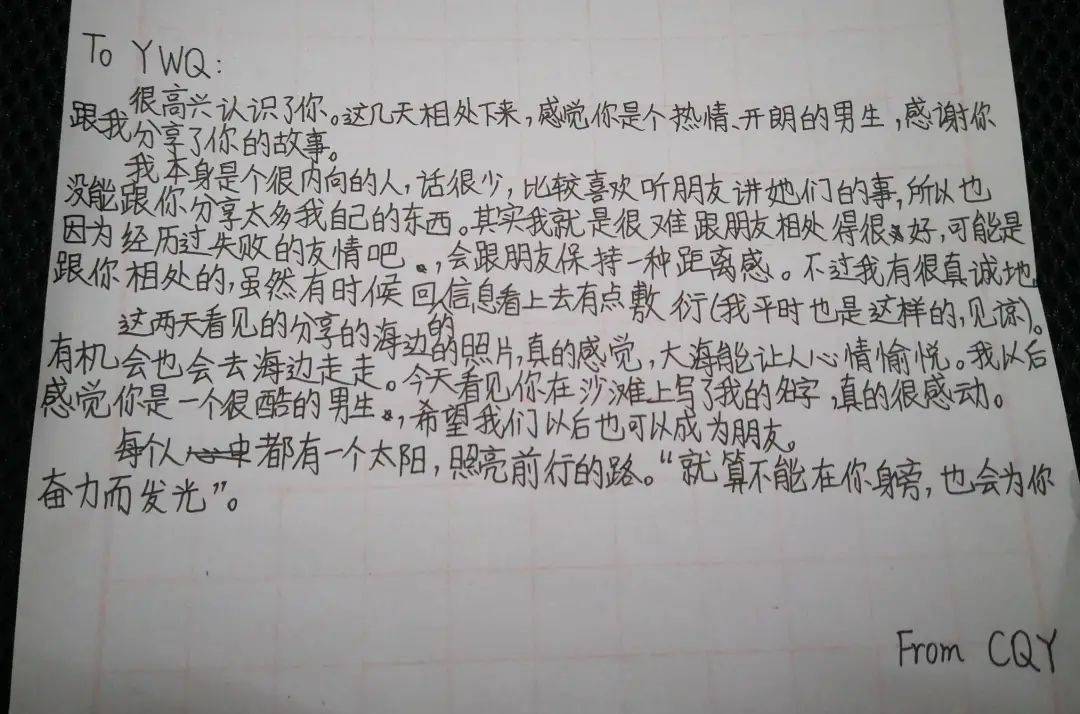 To YWQ:
很高兴认识了你。这几天相处下来,感觉你是个热情、开朗的男生,感谢你
跟我分享了你的故事。
我本身是个很内向的人,话很少,比较喜欢听朋友讲她们的事,所以也
没能跟你分享太多我自己的东西。其实我就是很难跟朋友相处得很好,可能是
因为经历过失败的友情吧,会跟朋友保持一种距离感。不过我有很真诚地
跟你相处的,虽然有时候回信息看上去有点敷衍(我平时也是这样的,见谅)。
这两天看见的分享的海边的的照片,真的感觉,大海能让人心情愉悦。我以后
有机会也会去海边走走。今天看见你在沙滩上写了我的名字,真的很感动。
感觉你是一个很酷的男生,希望我们以后也可以成为朋友。
每个人都有一个太阳,照亮前行的路。“就算不能在你身旁,也会为你
奋力而发光”。
From CQY